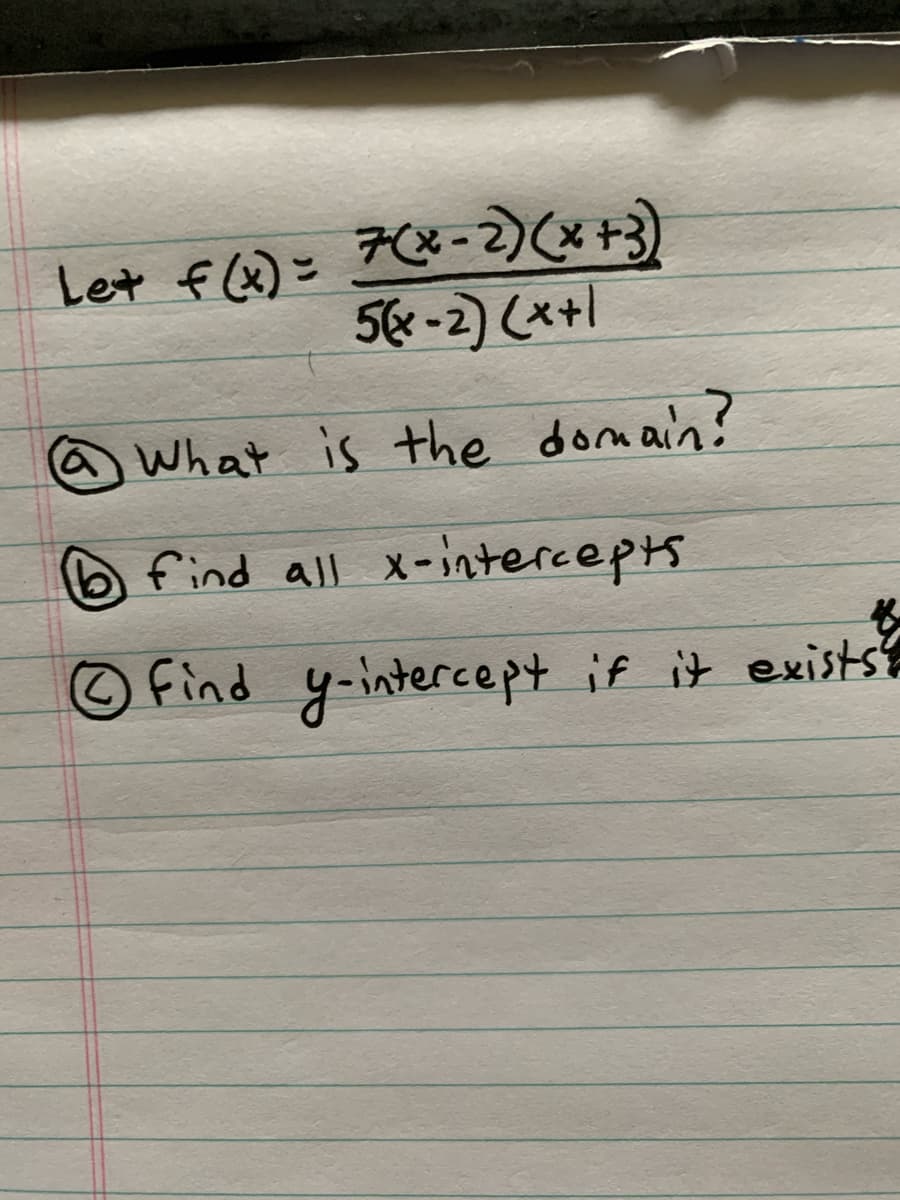 Let f(x) = 7(x-2)(x+3)
5(x-2)(x+1
ⓐ What is the domain?
ⓑ find all x-intercepts
ⓒ Find y-intercept if it exists